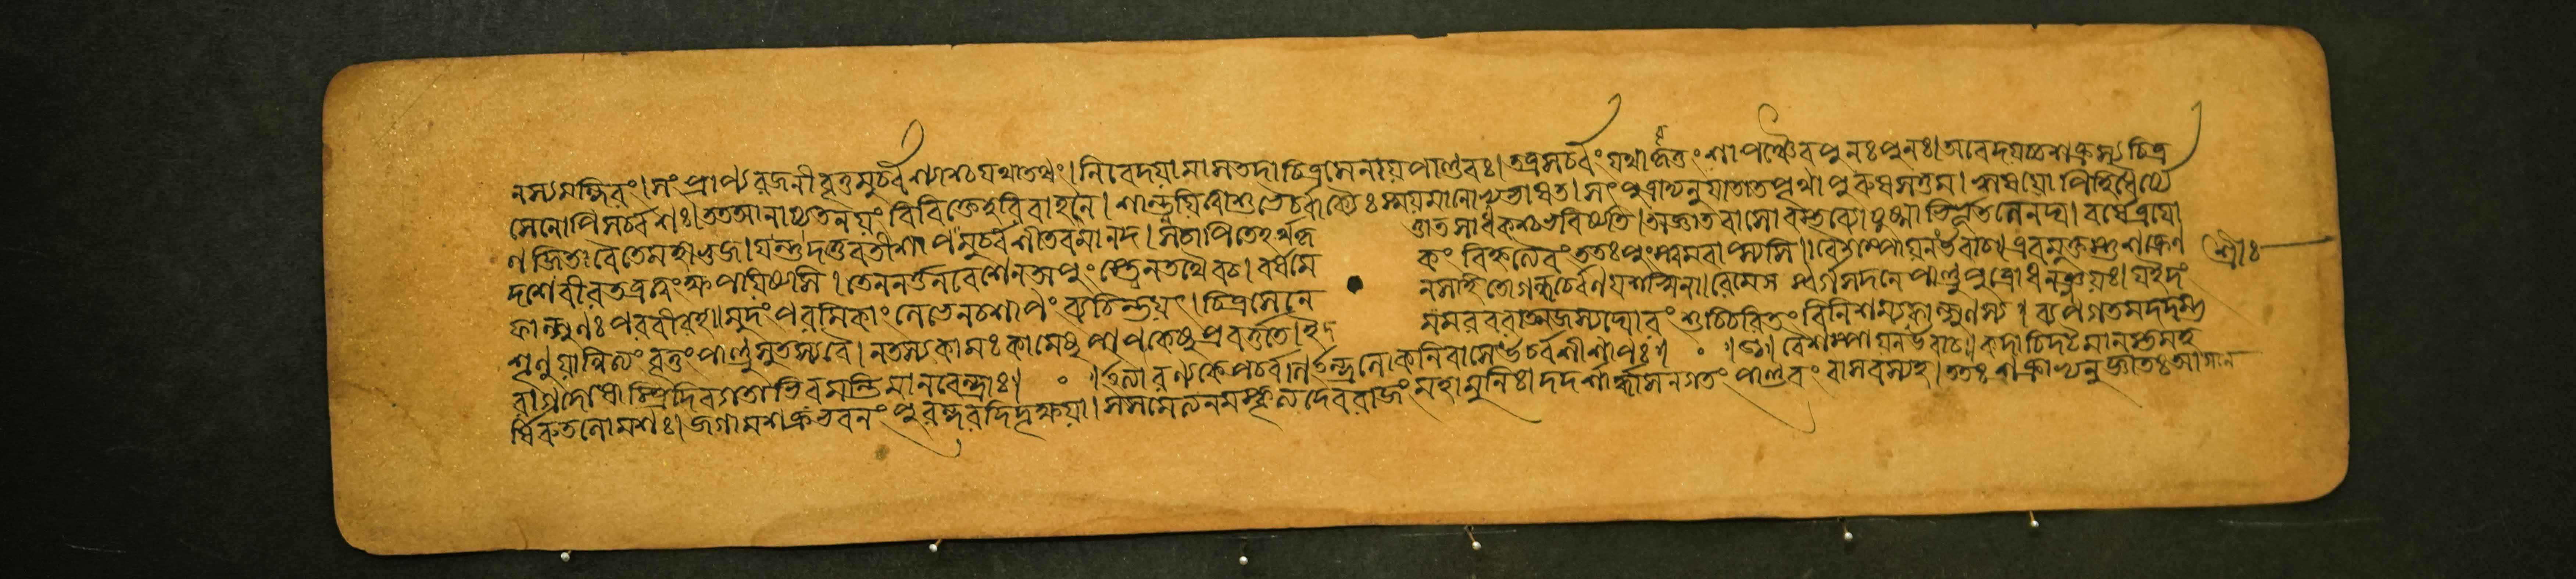 নস্যমন্দিরং। সংপ্রাপ্য রজনীবৃত্তমুর্ব্বশ্যাশ্চ যথাতথং। নিবেদয়ামাস তদা চিত্রসেনায় পাণ্ডবঃ। তত্র সর্ব্বং যথাবৃত্তং শাপঞ্চৈব পুনঃ পুনঃ। অবেদয়চ্চ শক্রস্য চিত্র
সেনোপি সর্ব্বশঃ। তত আনায্য তনয়ং বিবিক্তে হরিবাহনৈ। শান্ত্বয়িত্বা শুভৈর্ব্বাক্যৈঃ স্ময়মানোভ্যভাষত। সৎপুত্রাদ্য ত্বয়া তাত পৃথা পুরুষসত্তম। ঋষয়োপি হি ধৈর্য্যে
ণ জিতা বৈ তে মহাভুজ। যন্তু দত্তবতী শাপমুর্ব্বশী তব মানদ। স চাপি তেহর্থকৃ ত্তাত সাধকশ্চ ভবিষ্যতি। অজ্ঞাতবাসো বস্তব্যো যুষ্মাভির্ভূতলেনঘ। বর্ষে ত্রয়ো
দশে বীর তত্র ত্বং ক্ষপয়িষ্যসি। তেন নর্ত্তনবেশেন অপুংস্ত্বেন তথৈব চ। বর্ষমে কং বিহৃত্যৈবং ততঃ পুংস্ত্বমবাপ্স্যসি॥ বৈশম্পায়ন উবাচ। এবমুক্তস্তু শক্রেণ শ্রীঃ
ফাল্গুণঃ পরবীরহা। মুদং পরমিকাং লেভে ন চ শাপং ব্যচিন্তয়ৎ। চিত্রসেনে ন সহিতো গন্ধর্ব্বেণ যশস্বিনা। রেমে স স্বর্গসদনে পাণ্ডুপুত্রো ধনঞ্জয়ঃ। য ইদং
শৃণুয়ান্নিত্যং বৃত্তং পাণ্ডুসুতস্য বৈ। ন তস্য কামঃ কামেষু পাপকেষু প্রবর্ত্ততে। ইদ মমরবরাত্মজস্য ঘোরং শুচি চরিতং বিনিশম্য ফাল্গুণস্য। ব্যপগতমদদম্ভ
রাগদোষাস্ত্রিদিবগতাভিরমন্তি মানবেন্দ্রাঃ॥ ॰ ॥ ইত্যারণ্যকে পর্ব্বণি ইন্দ্রলোকনিবাসে উর্ব্বশীশাপঃ॥ ॰ ॥ ৩॥ বৈশম্পায়ন উবাচ॥ কদাচিদটমানস্তু মহ
র্ষিরুত লোমশঃ। জগাম শক্রভবনং পুরন্দরদিদৃক্ষয়া। স সমেত্য নমস্কৃত্য দেবরাজং মহামুনিঃ। দদর্শার্দ্ধাসনগতং পাণ্ডবং বাসবস্য হ। ততঃ শক্রাভ্যনুজ্ঞাতঃ আসন